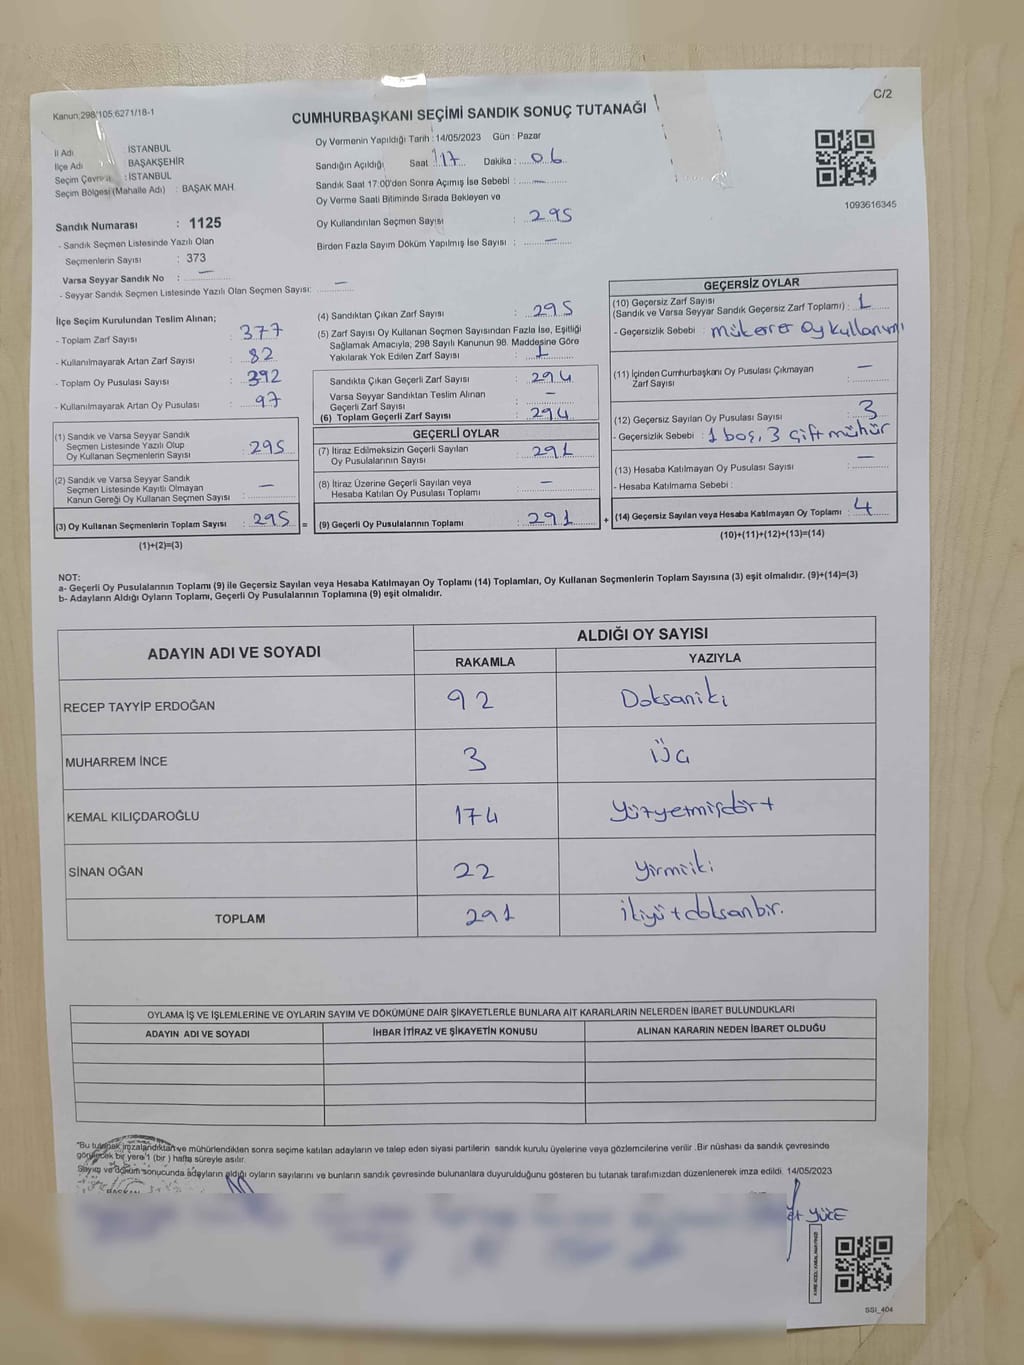 Kanun:298/105,6271/18-1
C/2
CUMHURBAŞKANI SEÇİMİ SANDIK SONUÇ TUTANAĞI
İl Adı İSTANBUL
İlçe Adı BAŞAKŞEHİR
Seçim Çevresi : İSTANBUL
Seçim Bölgesi (Mahalle Adı) : BAŞAK MAH.
Sandık Numarası : 1125
- Sandık Seçmen Listesinde Yazılı Olan
Seçmenlerin Sayısı : 373
Varsa Seyyar Sandık No : —
- Seyyar Sandık Seçmen Listesinde Yazılı Olan Seçmen Sayısı: —
Oy Vermenin Yapıldığı Tarih : 14/05/2023 Gün : Pazar
Sandığın Açıldığı Saat : 17 Dakika : 06
Sandık Saat 17:00'den Sonra Açımış İse Sebebi : —
Oy Verme Saati Bitiminde Sırada Bekleyen ve
Oy Kullandırılan Seçmen Sayısı : 295
Birden Fazla Sayım Döküm Yapılmış İse Sayısı : —
1093616345
İlçe Seçim Kurulundan Teslim Alınan;
- Toplam Zarf Sayısı : 377
- Kullanılmayarak Artan Zarf Sayısı : 82
- Toplam Oy Pusulası Sayısı : 392
- Kullanılmayarak Artan Oy Pusulası : 97
(1) Sandık ve Varsa Seyyar Sandık
Seçmen Listesinde Yazılı Olup
Oy Kullanan Seçmenlerin Sayısı : 295
(2) Sandık ve Varsa Seyyar Sandık
Seçmen Listesinde Kayıtlı Olmayan
Kanun Gereği Oy Kullanan Seçmen Sayısı : —
(3) Oy Kullanan Seçmenlerin Toplam Sayısı : 295 =
(1)+(2)=(3)
(4) Sandıktan Çıkan Zarf Sayısı : 295
(5) Zarf Sayısı Oy Kullanan Seçmen Sayısından Fazla İse, Eşitliği
Sağlamak Amacıyla; 298 Sayılı Kanunun 98. Maddesine Göre
Yakılarak Yok Edilen Zarf Sayısı : 1
Sandıkta Çıkan Geçerli Zarf Sayısı : 294
Varsa Seyyar Sandıktan Teslim Alınan
Geçerli Zarf Sayısı : —
(6) Toplam Geçerli Zarf Sayısı : 294
GEÇERLİ OYLAR
(7) İtiraz Edilmeksizin Geçerli Sayılan
Oy Pusulalarının Sayısı : 291
(8) İtiraz Üzerine Geçerli Sayılan veya
Hesaba Katılan Oy Pusulası Toplamı : —
(9) Geçerli Oy Pusulalarının Toplamı : 291 +
GEÇERSİZ OYLAR
(10) Geçersiz Zarf Sayısı
(Sandık ve Varsa Seyyar Sandık Geçersiz Zarf Toplamı) : 1
- Geçersizlik Sebebi : mükerrer oy kullanımı
(11) İçinden Cumhurbaşkanı Oy Pusulası Çıkmayan
Zarf Sayısı : —
(12) Geçersiz Sayılan Oy Pusulası Sayısı : 3
- Geçersizlik Sebebi : 1 boş, 3 çift mühür
(13) Hesaba Katılmayan Oy Pusulası Sayısı : —
- Hesaba Katılmama Sebebi :
(14) Geçersiz Sayılan veya Hesaba Katılmayan Oy Toplamı : 4
(10)+(11)+(12)+(13)=(14)
NOT:
a- Geçerli Oy Pusulalarının Toplamı (9) ile Geçersiz Sayılan veya Hesaba Katılmayan Oy Toplamı (14) Toplamları, Oy Kullanan Seçmenlerin Toplam Sayısına (3) eşit olmalıdır. (9)+(14)=(3)
b- Adayların Aldığı Oyların Toplamı, Geçerli Oy Pusulalarının Toplamına (9) eşit olmalıdır.
ADAYIN ADI VE SOYADI ALDIĞI OY SAYISI
RAKAMLA YAZIYLA
RECEP TAYYİP ERDOĞAN 92 Doksaniki
MUHARREM İNCE 3 Üç
KEMAL KILIÇDAROĞLU 174 Yüzyetmişdört
SİNAN OĞAN 22 Yirmiiki
TOPLAM 291 ikiyüzdoksanbir.
OYLAMA İŞ VE İŞLEMLERİNE VE OYLARIN SAYIM VE DÖKÜMÜNE DAİR ŞİKAYETLERLE BUNLARA AİT KARARLARIN NELERDEN İBARET BULUNDUKLARI
ADAYIN ADI VE SOYADI İHBAR İTİRAZ VE ŞİKAYETİN KONUSU ALINAN KARARIN NEDEN İBARET OLDUĞU
*Bu tutanak imzalandıktan ve mühürlendikten sonra seçime katılan adayların ve talep eden siyasi partilerin sandık kurulu üyelerine veya gözlemcilerine verilir .Bir nüshası da sandık çevresinde
görülecek bir yere 1 (bir ) hafta süreyle asılır.
Sayım ve döküm sonucunda adayların aldığı oyların sayılarını ve bunların sandık çevresinde bulunanlara duyurulduğunu gösteren bu tutanak tarafımızdan düzenlenerek imza edildi. 14/05/2023
BAŞKAN
YÜCE
SSI_404